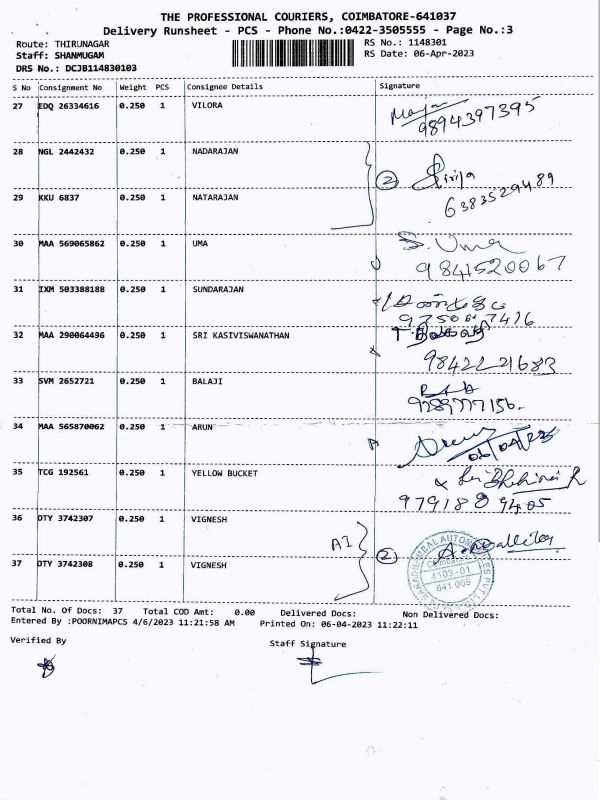 THE PROFESSIONAL COURIERS, COIMBATORE-641037
Delivery Runsheet - PCS - Phone No.:0422-3505555 - Page No.:3
Route: THIRUNAGAR RS No.: 1148301
Staff: SHANMUGAM RS Date: 06-Apr-2023
DRS No.: DCJB114830103
S No Consignment No Weight PCS Consignee Details Signature
27 EDQ 26334616 0.250 1 VILORA
9894397395
28 NGL 2442432 0.250 1 NADARAJAN
2
6383529489
29 KKU 6837 0.250 1 NATARAJAN
30 MAA 569065862 0.250 1 UMA S. Uma
9841520067
31 IXM 503388188 0.250 1 SUNDARAJAN
32 MAA 290064496 0.250 1 SRI KASIVISWANATHAN
9842221683
33 SVM 2652721 0.250 1 BALAJI
34 MAA 565870062 0.250 1 ARUN
35 TCG 192561 0.250 1 YELLOW BUCKET
9791889405
36 DTY 3742307 0.250 1 VIGNESH
2
37 DTY 3742308 0.250 1 VIGNESH
4103-01
641 005
Total No. Of Docs: 37 Total COD Amt: 0.00 Delivered Docs: Non Delivered Docs:
Entered By :POORNIMAPCS 4/6/2023 11:21:58 AM Printed On: 06-04-2023 11:22:11
Verified By Staff Signature